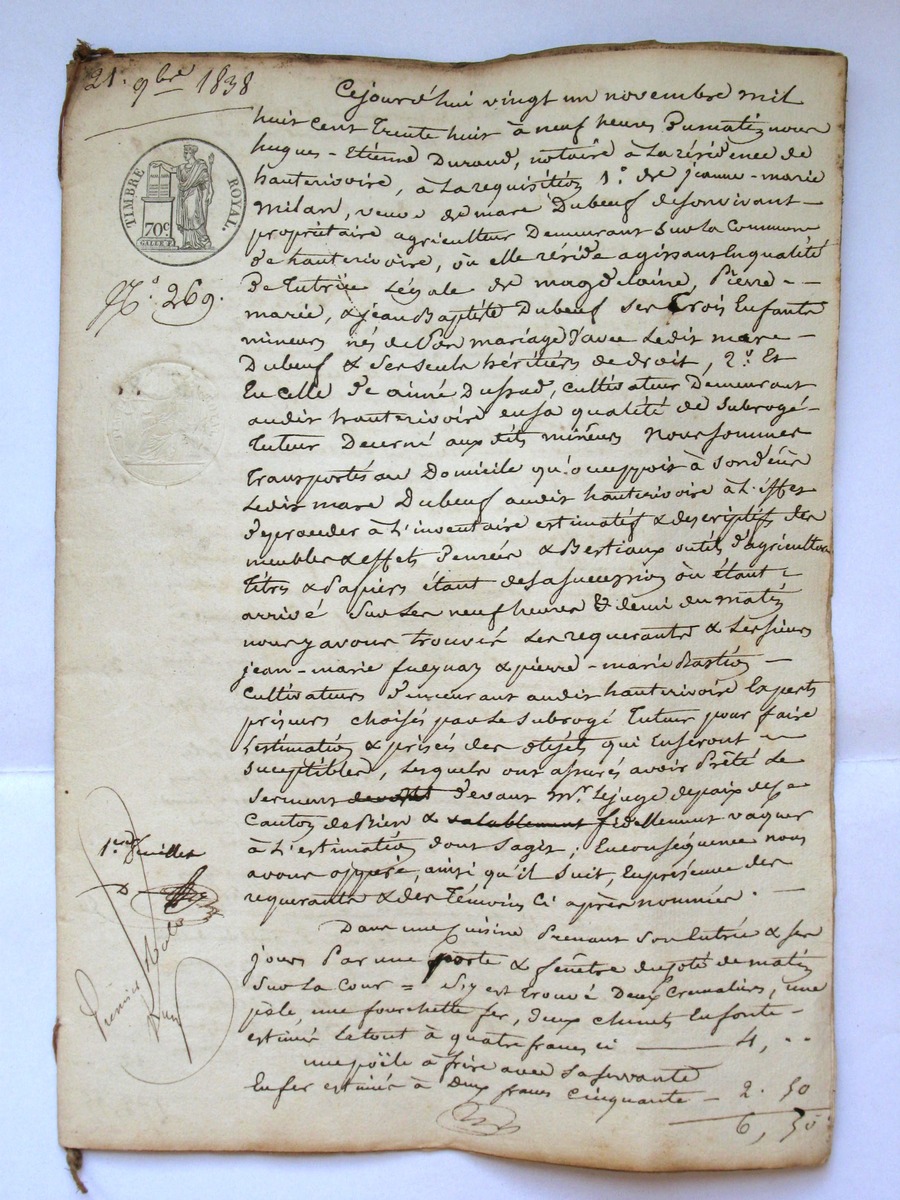 21. 9bre 1838
TIMBRE ROYAL.
70c
N.o 269.
Cejourd'hui vingt un novembre mil
huit cent trente huit à neuf heures Dumatin nous
hugues-Etienne Durand, notaire à la résidence de
hauterivoire, à la requisition 1.o de jeanne-marie
milan, veuve de marc Duboeuf desonvivant
propriétaire agriculteur Demeurant sur la Commune
de hauterivoire, où elle réside agissant Enqualité
De Tutrice Légale de magdelaine, Pierre-
marie, & jean Baptiste Duboeuf ses trois Enfants
mineurs nés deson mariage d'avec Ledit marc
Duboeuf & ses seuls héritiers de droit, 2.o Et
En celle de aimé Dussud, cultivateur Demeurant
audit hauterivoire ensa qualité de subrogé-
tuteur Décerné aux dits mineurs Nous sommes
Transportés au Domicile qu'occuppoit à son décès
Ledit marc Duboeuf audit hauterivoire à L'effet
d'y procéder à L'inventaire estimatif & descriptif des
meubles & effets denrées & Bestiaux outils d'agriculture
titres & Papiers étant de sa succession où étant
arrivé sur les neuf heures & demi du matin
nous y avons trouvé les requerants & Les sieurs
jean-marie & pierre-marie
Cultivateurs demeurant audit hauterivoire Experts
priseurs choisis par le subrogé tuteur pour faire
L'estimation & prisée des objets qui Enseront
suceptibles, Lesquels ont assurés avoir Prêté Le
serment devant devant Mr. Lejuge depaix de ce
Canton & valablement fidellement vaquer
à L'estimation dont sagit; Enconséquence nous
avons opperé, ainsi qu'il suit, En présence des
requerants & des témoins Ci après nommés.
Dans une Cuisine Prenant Son Entrée & ses
jours Par une porte & fenêtre du coté de matin
sur la Cour = S'y est trouvé Deux Cremaliers, une
pèle, une fourchette fer, deux chenets En fonte
estimé Le tout à quatre francs ci 4, ..
une poële à frire avec sa servante
En fer estimés à Deux francs Cinquante 2. 50
6, 50
1er feuillet
D